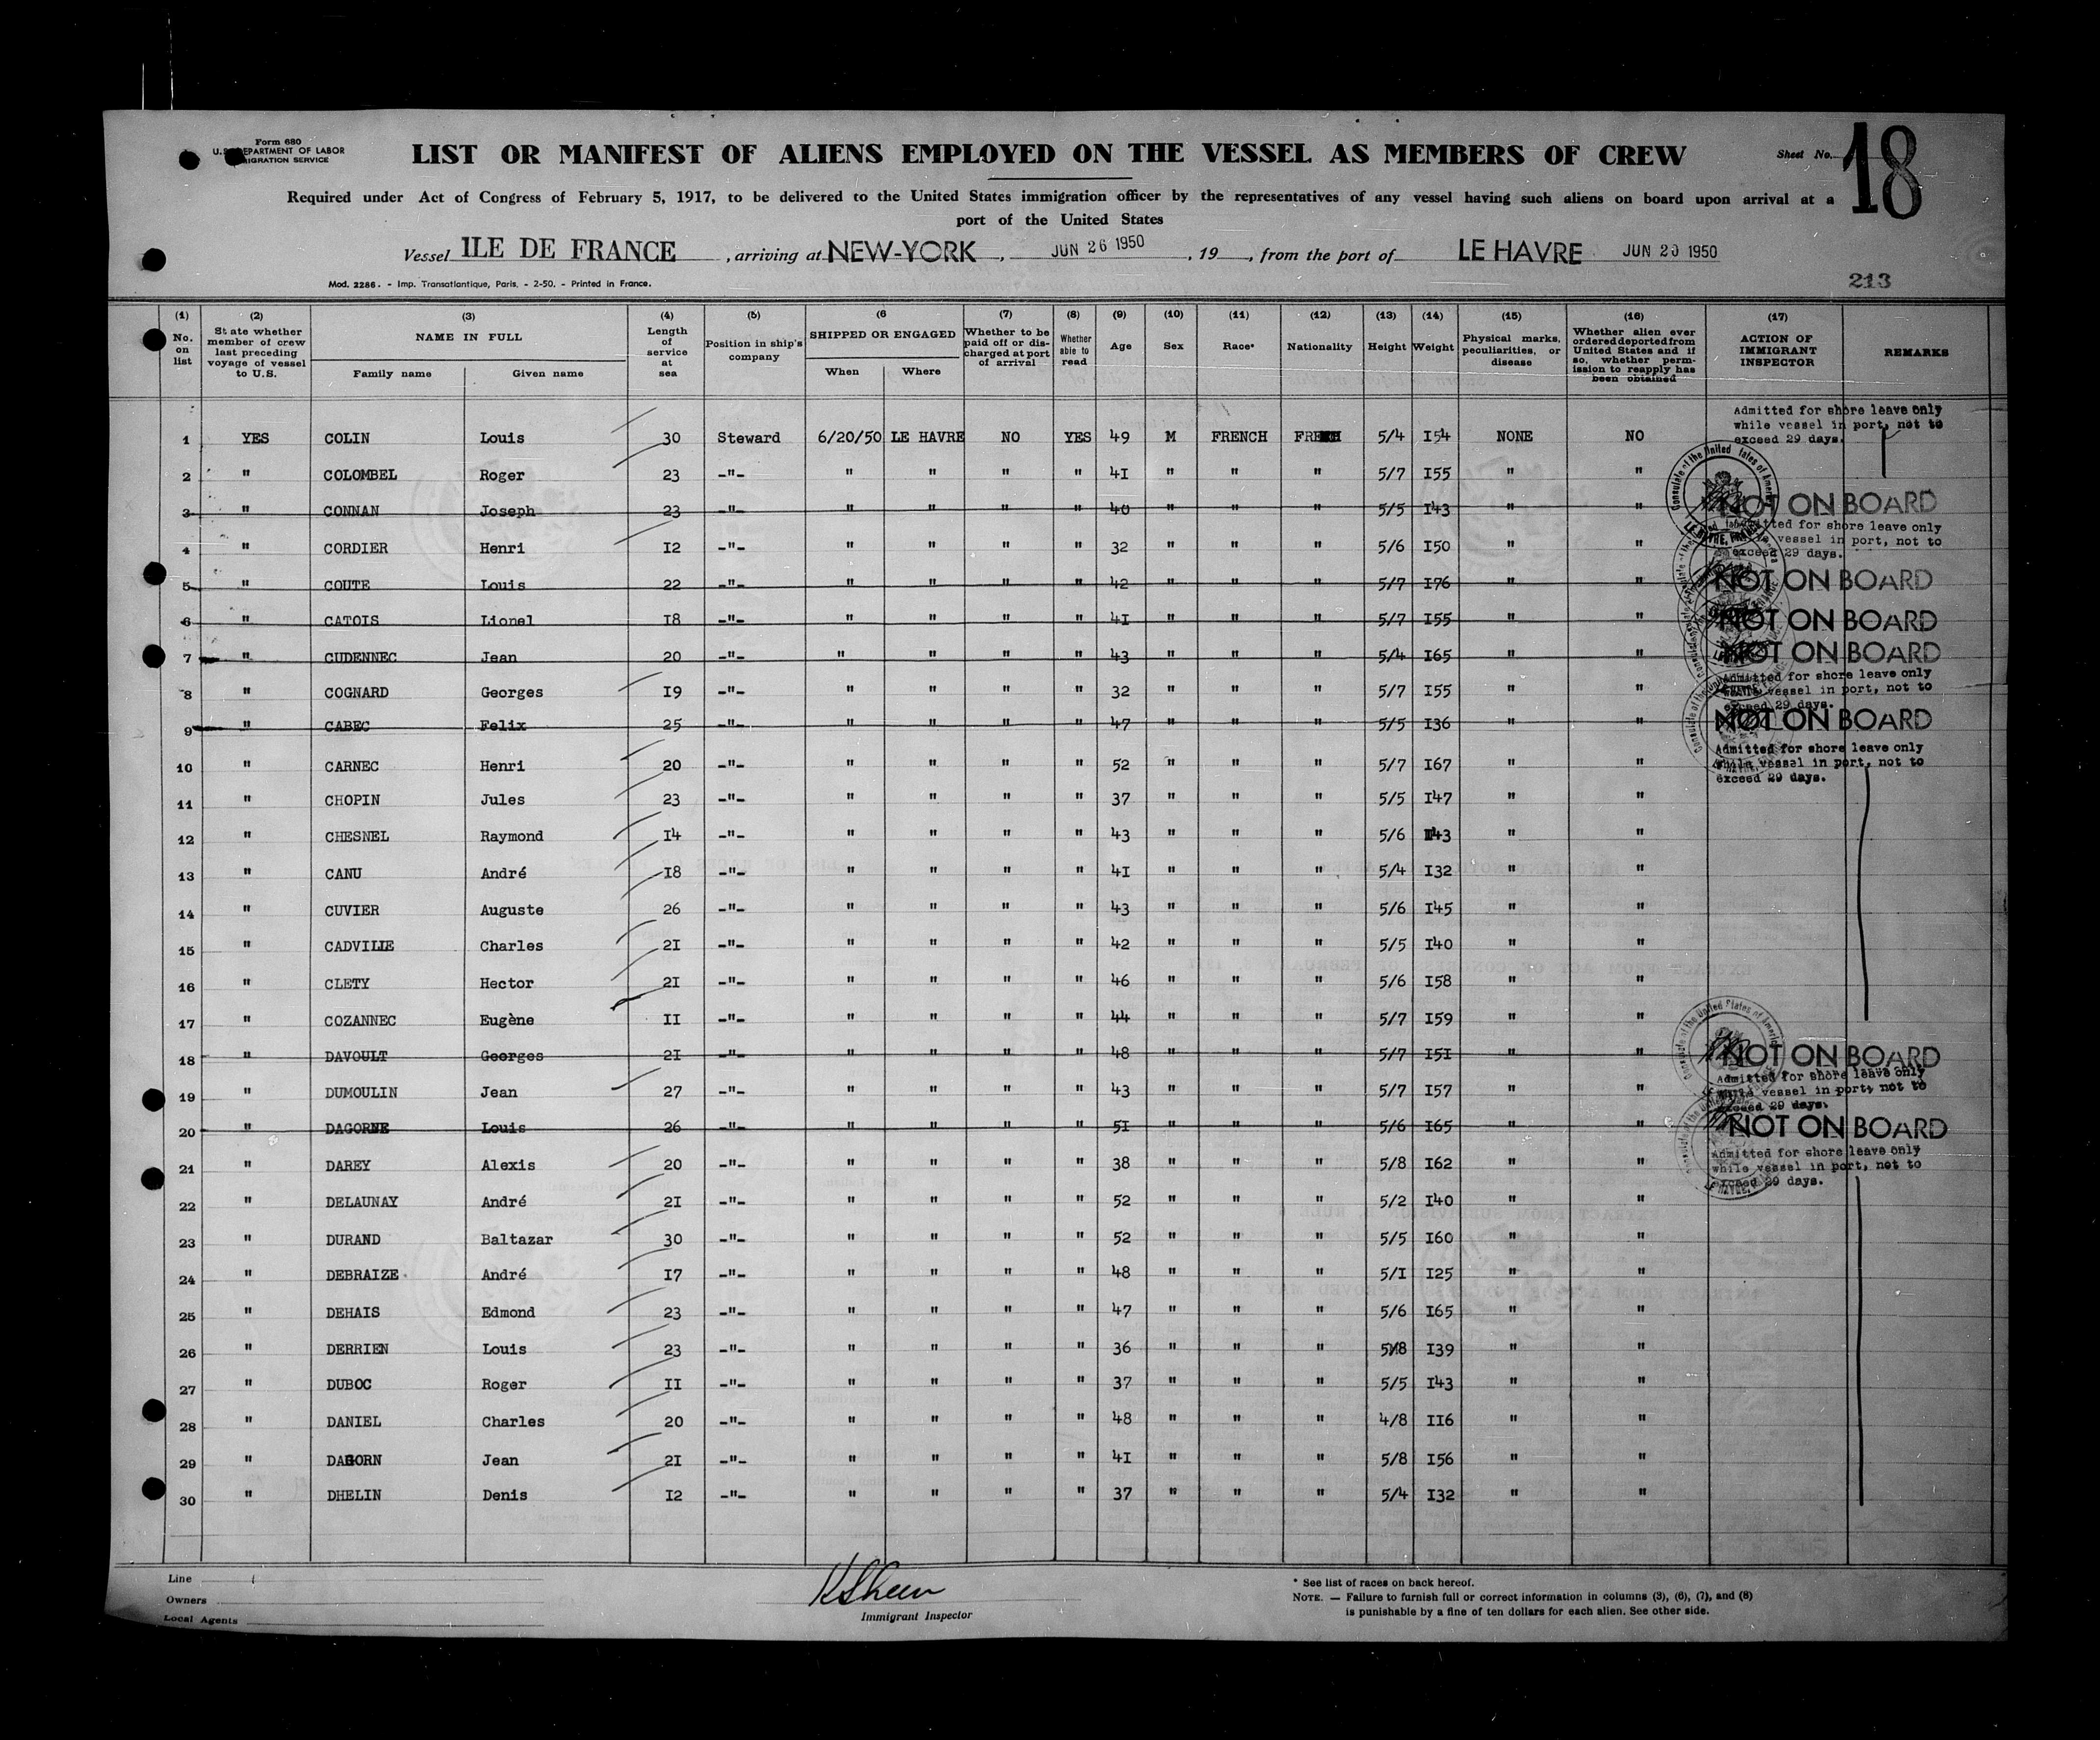 Form 680
U.S. DEPARTMENT OF LABOR
IMMIGRATION SERVICE
LIST OR MANIFEST OF ALIENS EMPLOYED ON THE VESSEL AS MEMBERS OF CREW
Sheet No. 18
Required under Act of Congress of February 5, 1917, to be delivered to the United States immigration officer by the representatives of any vessel having such aliens on board upon arrival at a
port of the United States
Vessel ILE DE FRANCE, arriving at NEW-YORK, JUN 26 1950, 19, from the port of LE HAVRE JUN 20 1950
Mod. 2286. - Imp. Transatlantique, Paris. - 2-50. - Printed in France.
213
(1) No. on list (2) State whether member of crew last preceding voyage of vessel to U.S. (3) NAME IN FULL Family name Given name (4) Length of service at sea (5) Position in ship's company (6 SHIPPED OR ENGAGED When Where (7) Whether to be paid off or discharged at port of arrival (8) Whether able to read (9) Age (10) Sex (11) Race* (12) Nationality (13) Height (14) Weight (15) Physical marks, peculiarities, or disease (16) Whether alien ever ordered deported from United States and if so, whether permission to reapply has been obtained (17) ACTION OF IMMIGRANT INSPECTOR REMARKS
Admitted for shore leave only
while vessel in port, not to
exceed 29 days.
1 YES COLIN Louis 30 Steward 6/20/50 LE HAVRE NO YES 49 M FRENCH FRENCH 5/4 I54 NONE NO
2 " COLOMBEL Roger 23 -"- " " " " 4I " " " 5/7 I55 " "
3 " CONNAN Joseph 23 -"- " " " " 40 " " " 5/5 I43 " " NOT ON BOARD
4 " CORDIER Henri I2 -"- " " " " 32 " " " 5/6 I50 " " Admitted for shore leave only
while vessel in port, not to
exceed 29 days.
5 " COUTE Louis 22 -"- " " " " 42 " " " 5/7 I76 " " NOT ON BOARD
6 " CATOIS Lionel I8 -"- " " " " 4I " " " 5/7 I55 " " NOT ON BOARD
7 " CUDENNEC Jean 20 -"- " " " " 43 " " " 5/4 I65 " " NOT ON BOARD
8 " COGNARD Georges I9 -"- " " " " 32 " " " 5/7 I55 " " Admitted for shore leave only
while vessel in port, not to
exceed 29 days.
9 " CABEC Felix 25 -"- " " " " 47 " " " 5/5 I36 " " NOT ON BOARD
10 " CARNEC Henri 20 -"- " " " " 52 " " " 5/7 I67 " " Admitted for shore leave only
while vessel in port, not to
exceed 29 days.
11 " CHOPIN Jules 23 -"- " " " " 37 " " " 5/5 I47 " "
12 " CHESNEL Raymond I4 -"- " " " " 43 " " " 5/6 I43 " "
13 " CANU André I8 -"- " " " " 4I " " " 5/4 I32 " "
14 " CUVIER Auguste 26 -"- " " " " 43 " " " 5/6 I45 " "
15 " CADVILLE Charles 2I -"- " " " " 42 " " " 5/5 I40 " "
16 " CLETY Hector 2I -"- " " " " 46 " " " 5/6 I58 " "
17 " COZANNEC Eugène II -"- " " " " 44 " " " 5/7 I59 " "
18 " DAVOULT Georges 2I -"- " " " " 48 " " " 5/7 I5I " " NOT ON BOARD
19 " DUMOULIN Jean 27 -"- " " " " 43 " " " 5/7 I57 " " Admitted for shore leave only
while vessel in port, not to
exceed 29 days.
20 " DAGORNE Louis 26 -"- " " " " 5I " " " 5/6 I65 " " NOT ON BOARD
21 " DAREY Alexis 20 -"- " " " " 38 " " " 5/8 I62 " " Admitted for shore leave only
while vessel in port, not to
exceed 29 days.
22 " DELAUNAY André 2I -"- " " " " 52 " " " 5/2 I40 " "
23 " DURAND Baltazar 30 -"- " " " " 52 " " " 5/5 I60 " "
24 " DEBRAIZE André I7 -"- " " " " 48 " " " 5/I I25 " "
25 " DEHAIS Edmond 23 -"- " " " " 47 " " " 5/6 I65 " "
26 " DERRIEN Louis 23 -"- " " " " 36 " " " 5/8 I39 " "
27 " DUBOC Roger II -"- " " " " 37 " " " 5/5 I43 " "
28 " DANIEL Charles 20 -"- " " " " 48 " " " 4/8 II6 " "
29 " DAGORN Jean 2I -"- " " " " 4I " " " 5/8 I56 " "
30 " DHELIN Denis I2 -"- " " " " 37 " " " 5/4 I32 " "
Line
Owners
Local Agents
Immigrant Inspector
* See list of races on back hereof.
NOTE. — Failure to furnish full or correct information in columns (3), (6), (7), and (8)
is punishable by a fine of ten dollars for each alien. See other side.